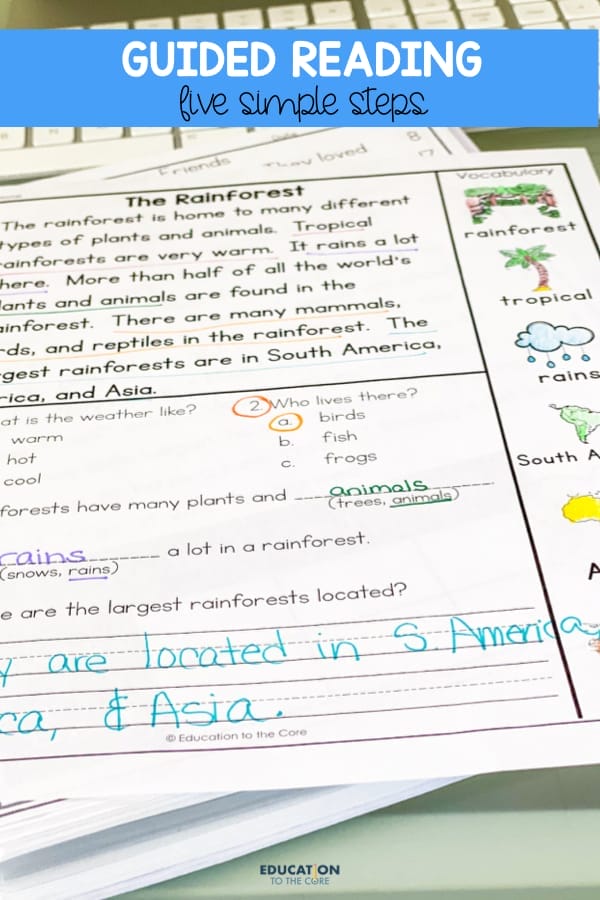 GUIDED READING
five simple steps
Friends They loved 8
17
Vocabulary
The Rainforest
The rainforest is home to many different
types of plants and animals. Tropical
ainforests are very warm. It rains a lot
here. More than half of all the world's
lants and animals are found in the
ainforest. There are many mammals,
rds, and reptiles in the rainforest. The
gest rainforests are in South America,
rica, and Asia.
rainforest
tropical
rains
South A
A
at is the weather like?
warm
hot
cool
2. Who lives there?
a. birds
b. fish
c. frogs
forests have many plants and animals
(trees, animals)
rains a lot in a rainforest.
(snows, rains)
e are the largest rainforests located?
y are located in S. America,
ca, & Asia.
© Education to the Core
EDUCATION
TO THE CORE